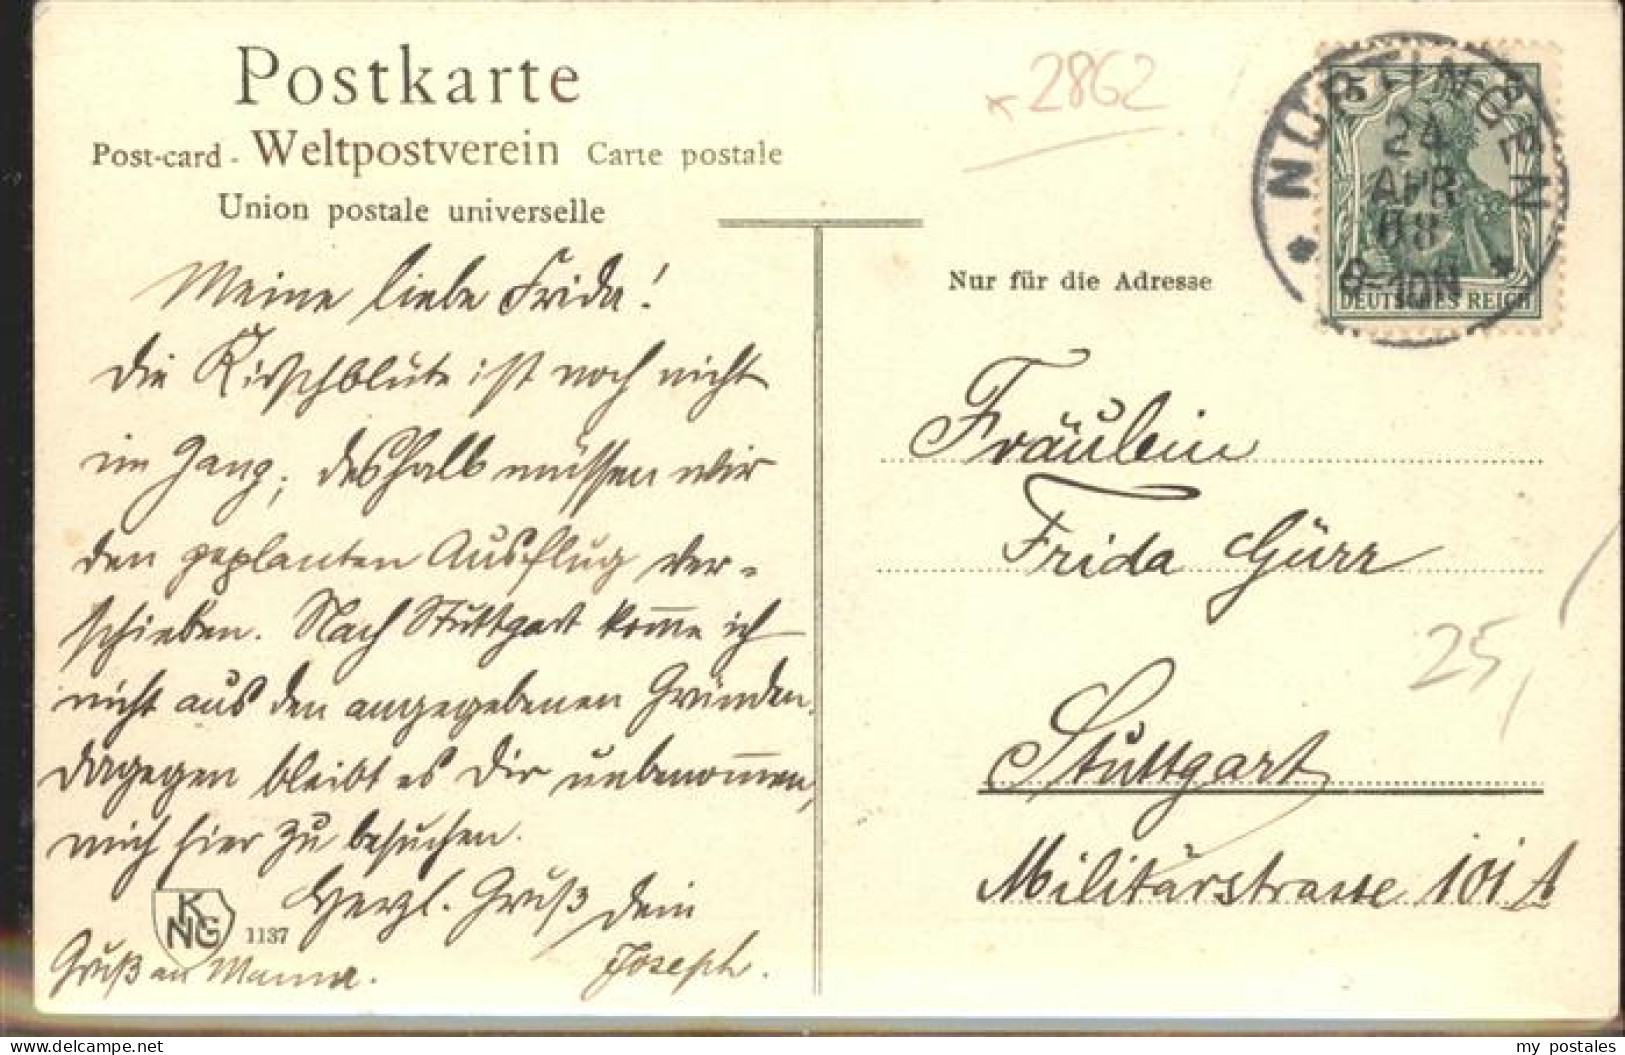 Postkarte
Post-card - Weltpostverein Carte postale
Union postale universelle
2862
NÜRTINGEN
24
APR
08
8-10N
DEUTSCHES REICH
Nur für die Adresse
Meine liebe Frida!
Die Kirschblüte ist noch nicht
im Gang, deshalb müssen wir
den geplanten Ausflug ver-
schieben. Nach Stuttgart kom̅e ich
nicht aus den angegebenen Gründen,
dagegen bleibt es Dir unbenom̅en,
mich hier zu besuchen.
Herzl. Gruß Dein
Joseph.
Gruß an Mama.
KNG 1137
Fräulein
Frida Gürr
Stuttgart
Militärstrasse 101 A
25,
delcampe.net
my_postales